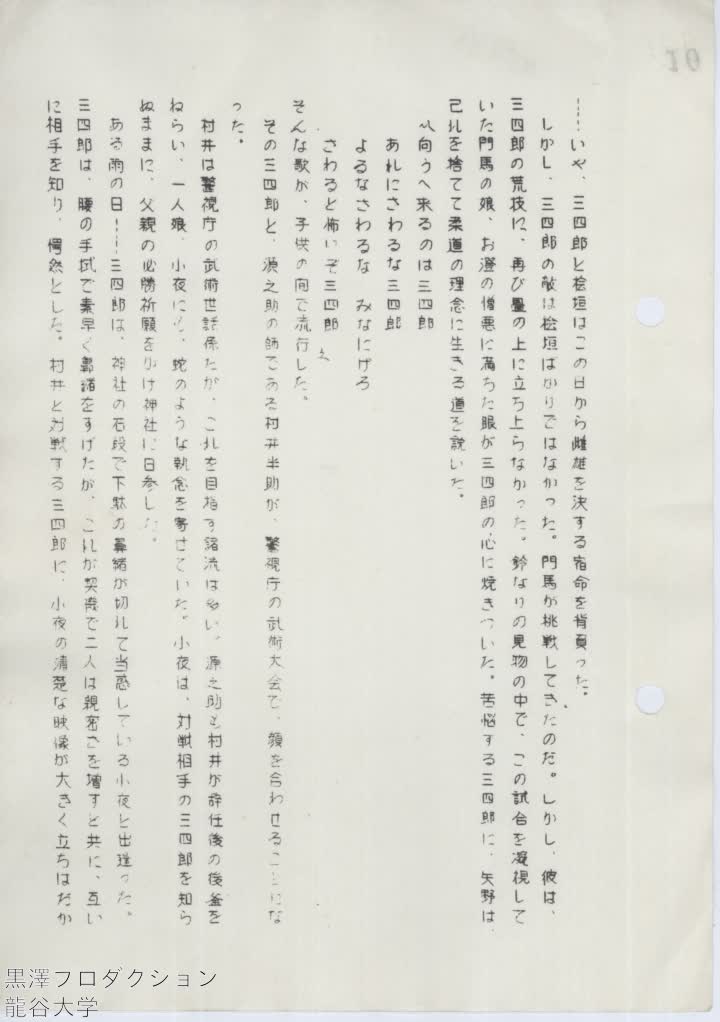 10
……いや、三四郎と桧垣はこの日から雌雄を決する宿命を背負った。
しかし、三四郎の敵は桧垣ばかりではなかった。門馬が挑戦してきたのだ。しかし、彼は、
三四郎の荒技に、再び畳の上に立ち上らなかった。鈴なりの見物の中で、この試合を凝視して
いた門馬の娘、お澄の憎悪に満ちた眼が三四郎の心に焼きついた。苦悩する三四郎に、矢野は、
己れを捨てて柔道の理念に生きる道を説いた。
〽向うへ来るのは三四郎
あれにさわるな三四郎
よるなさわるな みなにげろ
さわると怖いぞ三四郎
そんな歌が、子供の間で流行した。
その三四郎と、源之助の師である村井半助が、警視庁の武術大会で、顔を合わせることにな
った。
村井は警視庁の武術世話係だが、これを目指す諸流は多い。源之助も村井が辞任後の後釜を
ねらい、一人娘、小夜にも、蛇のような執念を寄せていた。小夜は、対戦相手の三四郎を知ら
ぬままに、父親の必勝祈願をかけ神社に日参した。
ある雨の日……三四郎は、神社の石段で下駄の鼻緒が切れて当惑している小夜と出逢った。
三四郎は、腰の手拭で素早く鼻緒をすげたが、これが契機で二人は親密さを増すと共に、互い
に相手を知り、愕然とした。村井と対戦する三四郎に、小夜の清楚な映像が大きく立ちはだか
黒澤プロダクション
龍谷大学